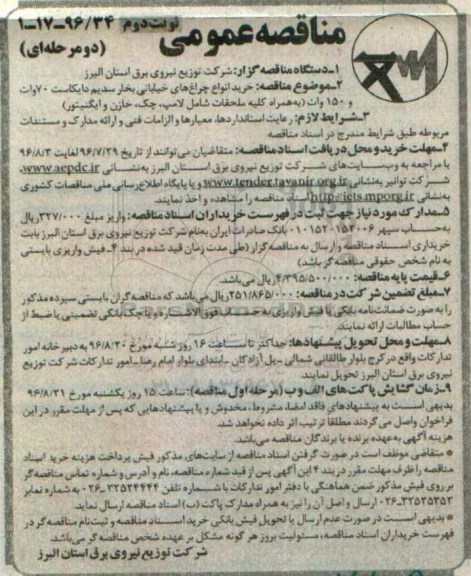 مناقصه عمومی
نوبت دوم ۹۶/۳۴-۱۷-۱
(دو مرحله‌ای)
۱-دستگاه مناقصه گزار: شرکت توزیع نیروی برق استان البرز
۲-موضوع مناقصه: خرید انواع چراغ‌های خیابانی بخار سدیم دایکاست ۷۰ وات
و ۱۵۰ وات (به همراه کلیه ملحقات شامل لامپ، چک، خازن و ایگنیتور)
۳-شرایط لازم: رعایت استانداردها، معیارها و الزامات فنی و ارائه مدارک و مستندات
مربوطه طبق شرایط مندرج در اسناد مناقصه
۴-مهلت خرید و محل دریافت اسناد مناقصه: متقاضیان می‌توانند از تاریخ ۹۶/۷/۲۹ لغایت ۹۶/۸/۳
با مراجعه به وب‌سایت‌های شرکت توزیع نیروی برق استان البرز به نشانی www.aepdc.ir،
شرکت توانیر به نشانی www.tender.tavanir.org.ir و یا پایگاه اطلاع‌رسانی ملی مناقصات کشوری
به نشانی http://iets.mporg.ir اسناد مناقصه را مشاهده و اخذ نمایند.
۵-مدارک مورد نیاز جهت ثبت در فهرست خریداران اسناد مناقصه: واریز مبلغ ۳۲۷/۰۰۰ ریال
به حساب سپهر ۰۱۰۱۵۲۰۱۵۴۰۰۶ بانک صادرات ایران به نام شرکت توزیع نیروی برق استان البرز بابت
خریداری اسناد مناقصه و ارسال به مناقصه گزار (طی مدت زمان قید شده در بند ۴-فیش واریزی بایستی
به نام شخص حقوقی مناقصه گر باشد)
۶-قیمت پایه مناقصه: ۴/۳۹۵/۵۰۰/۰۰۰ ریال می‌باشد.
۷-مبلغ تضمین شرکت در مناقصه: ۲۵۱/۸۶۵/۰۰۰ ریال می‌باشد که مناقصه گران بایستی سپرده مذکور
را به صورت ضمانت‌نامه بانکی یا فیش واریزی به حساب فوق الاشاره و یا چک بانکی تضمینی یا ضبط از
حساب مطالبات ارائه نمایند.
۸-مهلت و محل تحویل پیشنهادها: حداکثر تا ساعت ۱۶ روز شنبه مورخ ۹۶/۸/۲۰ به دبیرخانه امور
تدارکات واقع در کرج بلوار طالقانی شمالی-پل آزادگان-ابتدای بلوار امام رضا-امور تدارکات شرکت توزیع
نیروی برق استان البرز تحویل نمایند.
۹-زمان گشایش پاکت‌های الف و ب (مرحله اول مناقصه): ساعت ۱۵ روز یکشنبه مورخ ۹۶/۸/۲۱
بدیهی است به پیشنهادهای فاقد امضا، مشروط، مخدوش و یا پیشنهادهایی که پس از مهلت مقرر در این
فراخوان واصل می‌گردند مطلقا ترتیب اثر داده نخواهد شد.
هزینه آگهی به عهده برنده یا برندگان مناقصه می‌باشد.
• متقاضی موظف است در صورت گرفتن اسناد مناقصه از سایت‌های مذکور فیش پرداخت هزینه خرید اسناد
مناقصه را ظرف مهلت مقرر در بند ۴ این آگهی پس از قید شماره مناقصه، نام و آدرس و شماره تماس مناقصه گر
بر روی فیش مذکور ضمن هماهنگی با دفتر امور تدارکات با شماره تلفن ۳۲۵۲۴۴۴۴-۰۲۶ به شماره نمابر
۳۲۵۲۵۳۵۳-۰۲۶ ارسال و اصل آن را نیز به همراه مدارک پاکت (ب) اسناد مناقصه ارسال نماید.
• بدیهی است در صورت عدم ارسال یا تحویل فیش بانکی خرید اسناد مناقصه و ثبت نام مناقصه گر در
فهرست خریداران اسناد مناقصه، مسئولیت بروز هر گونه مشکل بر عهده شخص مناقصه گر می‌باشد.
شرکت توزیع نیروی برق استان البرز